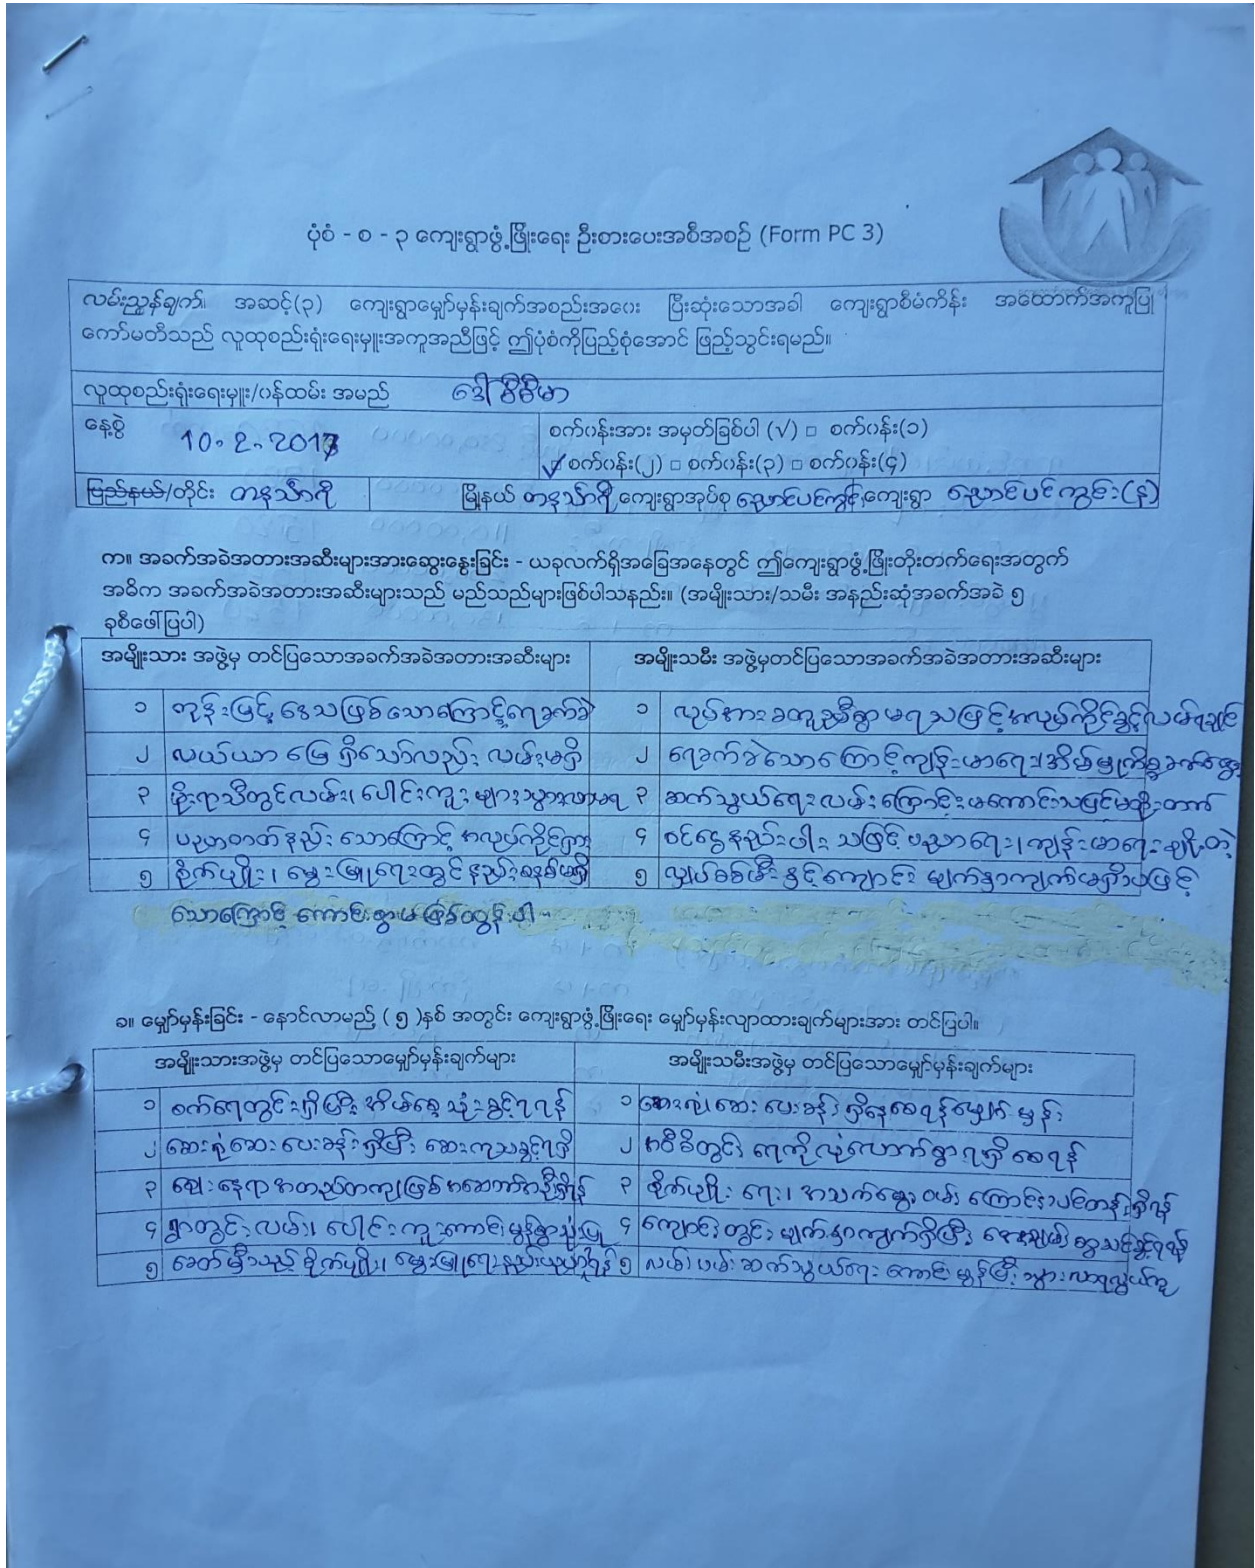 ပုံစံ - စ - ၃ ကျေးရွာဖွံ့ဖြိုးရေး ဦးစားပေးအစီအစဉ် (Form PC 3)
လမ်းညွှန်ချက်၊ အဆင့်(၃) ကျေးရွာမျှော်မှန်းချက်အစည်းအဝေး ပြီးဆုံးသောအခါ ကျေးရွာစီမံကိန်း အထောက်အကူပြု
ကော်မတီသည် လူထုစည်းရုံးရေးမှူးအကူအညီဖြင့် ဤပုံစံကိုပြည့်စုံအောင် ဖြည့်သွင်းရမည်။
လူထုစည်းရုံးရေးမှူး/ဝန်ထမ်း အမည် ဒေါ်စိမ်မာ
နေ့စွဲ 10.2.2017 စက်ဝန်းအား အမှတ်ခြစ်ပါ (√) □ စက်ဝန်း(၁)
√ စက်ဝန်း(၂) □ စက်ဝန်း(၃) □ စက်ဝန်း(၄)
ပြည်နယ်/တိုင်း တနင်္သာရီ မြို့နယ် တနင်္သာရီ ကျေးရွာအုပ်စု ညောင်ပင်ကွင်း ကျေးရွာ ညောင်ပင်ကွင်း(န)
က။ အခက်အခဲအတားအဆီးများအားဆွေးနွေးခြင်း - ယခုလက်ရှိအခြေအနေတွင် ဤကျေးရွာဖွံ့ဖြိုးတိုးတက်ရေးအတွက်
အဓိက အခက်အခဲအတားအဆီးများသည် မည်သည်များဖြစ်ပါသနည်း။ (အမျိုးသား/သမီး အနည်းဆုံးအခက်အခဲ ၅
ခုစီဖော်ပြပါ)
အမျိုးသား အဖွဲ့မှ တင်ပြသောအခက်အခဲအတားအဆီးများ အမျိုးသမီး အဖွဲ့မှတင်ပြသောအခက်အခဲအတားအဆီးများ
၁ ကုန်းမြင့်ဒေသဖြစ်သောကြောင့်ရေခက်ခဲ ၁ လုပ်အားခတူညီစွာမရသဖြင့်အလုပ်ကိုင်ခွင့်
၂ လယ်ယာမြေရှိသော်လည်း လမ်းမရှိ ၂ ရေခက်ခဲသောကြောင့်ကျန်းမာရေး၊
၃ မိုးရာသီတွင်လမ်း၊ပေါင်းကူးများသွားလာမရ ၃ ဆက်သွယ်ရေးလမ်းကြောင်းမကောင်းသဖြင့်မတိုးတက်
၄ ပညာတတ်နည်းသောကြောင့် အလုပ်ကိုင်ရှား ၄ ဝင်ငွေနည်းပါးသဖြင့် ပညာရေး၊ကျန်းမာရေးချို့တဲ့
၅ စိုက်ပျိုး၊မွေးမြူရေးတွင်နည်းစနစ်မရှိ ၅ လျှပ်စစ်မီးနှင့်ကျောင်း မျက်နှာကျက်မရှိသဖြင့်
သောကြောင့် ကောင်းစွာမဖြစ်ထွန်းပါ
ခ။ မျှော်မှန်းခြင်း - နောင်လာမည့် ( ၅ )နှစ် အတွင်း ကျေးရွာဖွံ့ဖြိုးရေး မျှော်မှန်းလျာထားချက်များအား တင်ပြပါ။
အမျိုးသားအဖွဲ့မှ တင်ပြသောမျှော်မှန်းချက်များ အမျိုးသမီးအဖွဲ့မှ တင်ပြသောမျှော်မှန်းချက်များ
၁ စက်ရေတွင်းရှိပြီး အိမ်စေ့သုံးခွင့်ရရန် ၁ ဆေးရုံ၊ဆေးပေးခန်းရှိနေစေရန်မျှော်မှန်း
၂ ဆေးရုံဆေးပေးခန်းရှိပြီး ဆေးကုသခွင့်ရရှိ ၂ အစီစီတွင် ရေကိုလုံလောက်စွာရရှိစေရန်
၃ ဈေးနေရာအတည်တကျဖြစ် ၃ စိုက်ပျိုးရေး၊ အသက်မွေးဝမ်းကြောင်းသင်တန်းရှိရန်
၄ ရွာတွင်းလမ်း၊ပေါင်းကူးကောင်းမွန်စွာသုံးပြု ၄ ကျောင်းတွင် မျက်နှာကျက်ရှိပြီး
၅ ခေတ်မီသည့်စိုက်ပျိုး၊မွေးမြူရေးနည်းပညာရှိရန် ၅ လမ်းပမ်းဆက်သွယ်ရေးကောင်းမွန်ပြီး သွားလာရလွယ်ကူ